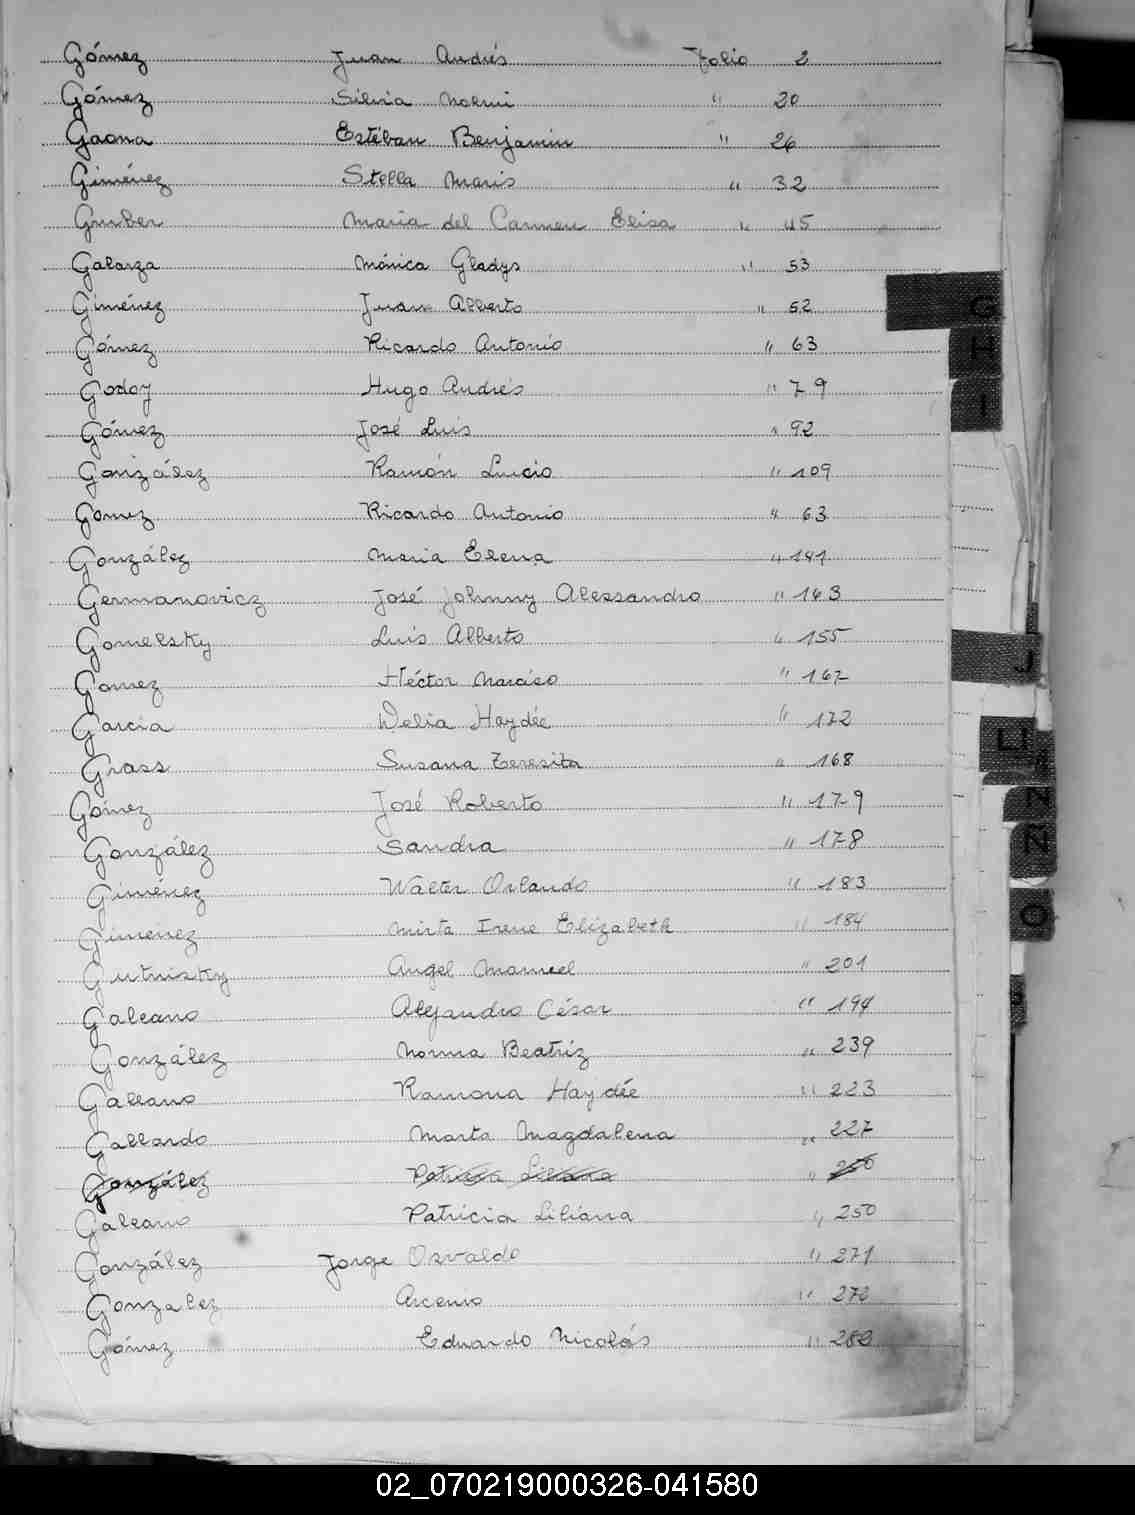 Gómez Juan Andrés Folio 2
Gómez Silvia Noemi " 20
Gaona Estéban Benjamin " 26
Giménez Stella Maris " 32
Gruber Maria del Carmen Elisa " 45
Galarza Mónica Gladys " 53
Giménez Juan Alberto " 52
Gómez Ricardo Antonio " 63
Godoy Hugo Andrés " 79
Gómez José Luis " 92
González Ramón Lucio " 109
Gomez Ricardo Antonio " 63
González Maria Elena "
Germanovicz José Johnny Alessandro " 143
Gomelsky Luis Alberto " 155
Gomez Héctor Narciso " 162
Garcia Delia Haydée " 172
Grass Susana Teresita " 168
Gómez José Roberto " 179
González Sandra " 178
Giménez Walter Orlando " 183
Gimenez Mirta Irene Elizabeth " 184
Gutnisky Angel Manuel " 201
Galeano Alejandro César " 194
González Norma Beatriz " 239
Galeano Ramona Haydée " 223
Gallardo Marta Magdalena " 227
González Patricia Liliana " 250
Galeano Patricia Liliana " 250
González Jorge Osvaldo " 271
Gonzalez Arcenio " 272
Gómez Eduardo Nicolás " 282
G
H
I
J
LL
N
Ñ
O
02_070219000326-041580